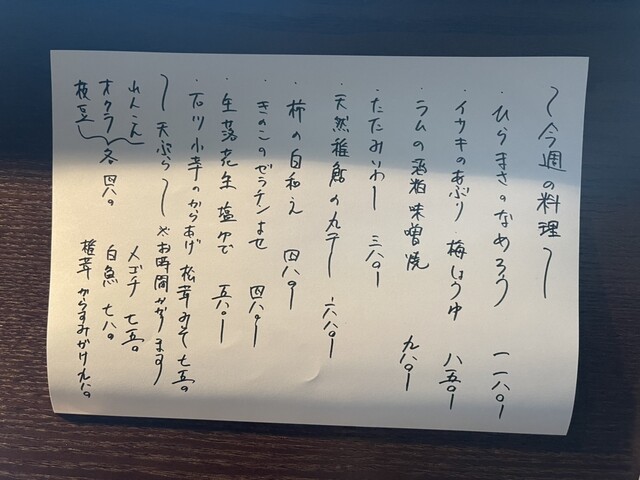 〜今週の料理〜
・ひらまさのなめろう 一一八〇ー
・イサキのあぶり 梅しょうゆ 八五〇ー
・ラムの酒粕味噌焼 九八〇ー
・たたみいわし 三八〇ー
・天然稚鮎の丸干し 六八〇ー
・柿の白和え 四八〇ー
・きのこのゼラチンよせ 四八〇ー
・生落花生塩ゆで 五八〇ー
・石川小芋のからあげ 松茸みそ 七五〇
〜天ぷら〜 ※お時間かかります
れんこん
オクラ 各四八〇
枝豆
メゴチ 七五〇
白魚 七八〇
椎茸 からすみがけ 九八〇